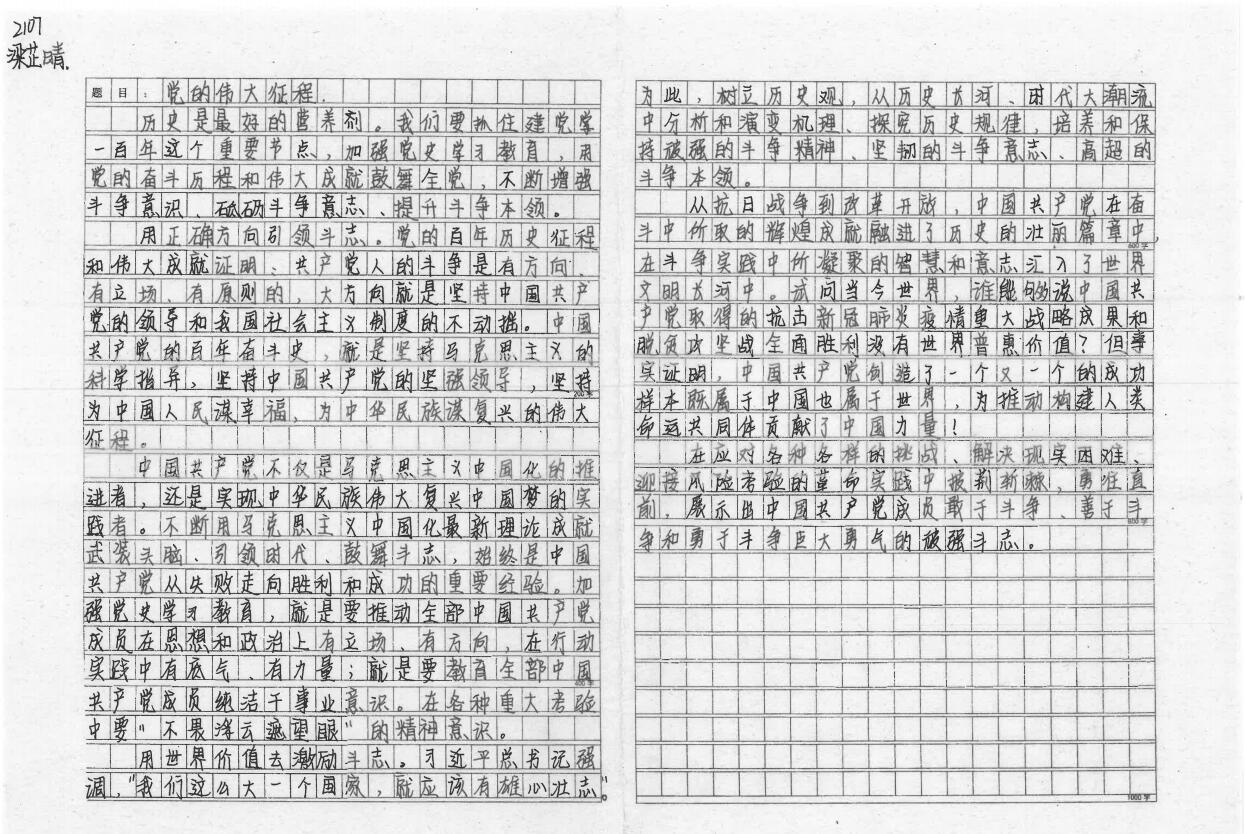 2107
梁芷晴.
题目：党的伟大征程.
历史是最好的营养剂。我们要抓住建党学
一百年这个重要节点，加强党史学习教育，用
党的奋斗历程和伟大成就鼓舞全党，不断增强
斗争意识、砥砺斗争意志、提升斗争本领。
用正确方向引领斗志。党的百年历史征程
和伟大成就证明、共产党人的斗争是有方向、
有立场、有原则的，大方向就是坚持中国共产
党的领导和我国社会主义制度的不动摇。中国
共产党的百年奋斗史，就是坚持马克思主义的
科学指导，坚持中国共产党的坚强领导，坚持
200字
为中国人民谋幸福，为中华民族谋复兴的伟大
征程。
中国共产党不仅是马克思主义中国化的推
进者，还是实现中华民族伟大复兴中国梦的实
践者。不断用马克思主义中国化最新理论成就
武装头脑、引领时代、鼓舞斗志，始终是中国
共产党从失败走向胜利和成功的重要经验。加
强党史学习教育，就是要推动全部中国共产党
成员在思想和政治上有立场、有方向，在行动
实践中有底气、有力量；就是要教育全部中国
400字
共产党成员纯洁干事业意识。在各种重大考验
中要"不畏浮云遮望眼"的精神意识。
用世界价值去激励斗志。习近平总书记强
调，"我们这么大一个国家，就应该有雄心壮志"。
为此，树立历史观，从历史长河、时代大潮流
中分析和演变机理、探究历史规律，培养和保
持顽强的斗争精神、坚韧的斗争意志、高超的
斗争本领。
从抗日战争到改革开放，中国共产党在奋
斗中所取的辉煌成就融进了历史的壮丽篇章中，
600字
在斗争实践中所凝聚的智慧和意志汇入了世界
文明长河中。试问当今世界，谁能够说中国共
产党取得的抗击新冠肺炎疫情重大战略成果和
脱贫攻坚战全面胜利没有世界普惠价值？但事
实证明，中国共产党创造了一个又一个的成功
样本既属于中国也属于世界，为推动构建人类
命运共同体贡献了中国力量！
在应对各种各样的挑战、解决现实困难、
迎接风险考验的革命实践中披荆斩棘，勇往直
前，展示出中国共产党成员敢于斗争、善于斗
800字
争和勇于斗争巨大勇气的顽强斗志。
1000字